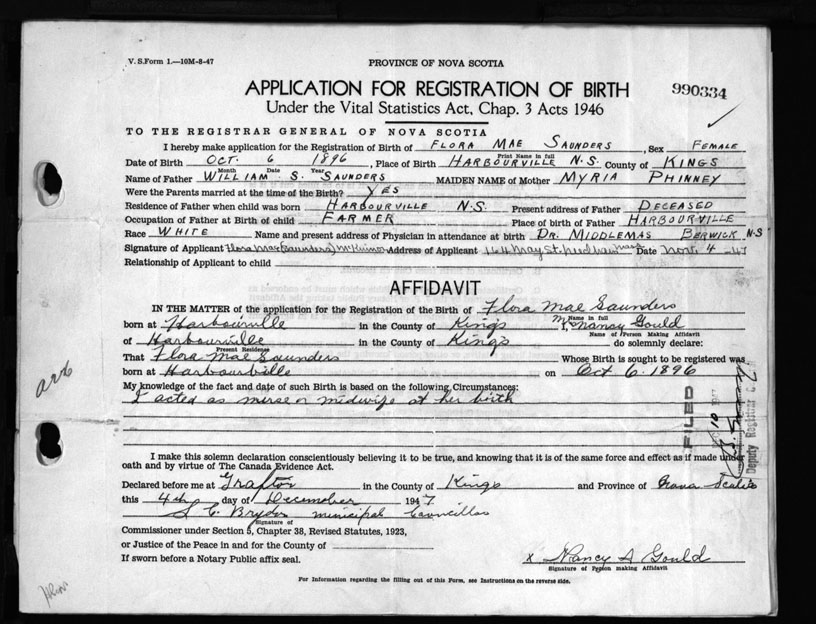 V. S. Form 1.—10M-8-47
PROVINCE OF NOVA SCOTIA
APPLICATION FOR REGISTRATION OF BIRTH
990334
Under the Vital Statistics Act, Chap. 3 Acts 1946
TO THE REGISTRAR GENERAL OF NOVA SCOTIA
I hereby make application for the Registration of Birth of FLORA MAE SAUNDERS, Sex FEMALE
Print Name in full
Date of Birth OCT. 6 1896, Place of Birth HARBOURVILLE N.S. County of KINGS
Month Date Year
Name of Father WILLIAM S. SAUNDERS MAIDEN NAME of Mother MYRIA PHINNEY
Were the Parents married at the time of the Birth? YES
Residence of Father when child was born HARBOURVILLE N.S. Present address of Father DECEASED
Occupation of Father at Birth of child FARMER Place of birth of Father HARBOURVILLE
Race WHITE Name and present address of Physician in attendance at birth DR. MIDDLEMAS BERWICK N.S
Signature of Applicant Flora Mae (Saunders) Address of Applicant May St. Date Nov. 4 -47
Relationship of Applicant to child
AFFIDAVIT
IN THE MATTER of the application for the Registration of the Birth of Flora Mae Saunders
Name in full
born at Harbourville in the County of Kings Nancy Gould
Name of Person Making Affidavit
of Harbourville in the County of Kings do solemnly declare:
Present Residence
That Flora Mae Saunders Whose Birth is sought to be registered was
born at Harbourville on Oct 6. 1896
My knowledge of the fact and date of such Birth is based on the following Circumstances:
I acted as nurse or midwife at her birth
FILED
Deputy Registrar
I make this solemn declaration conscientiously believing it to be true, and knowing that it is of the same force and effect as if made under
oath and by virtue of The Canada Evidence Act.
Declared before me at Grafton in the County of Kings and Province of Nova Scotia
this 4th day of December 1947
Municipal Councillor
Signature of
Commissioner under Section 5, Chapter 38, Revised Statutes, 1923,
or Justice of the Peace in and for the County of
If sworn before a Notary Public affix seal.
x Nancy A Gould
Signature of Person making Affidavit
For Information regarding the filling out of this Form, see Instructions on the reverse side.